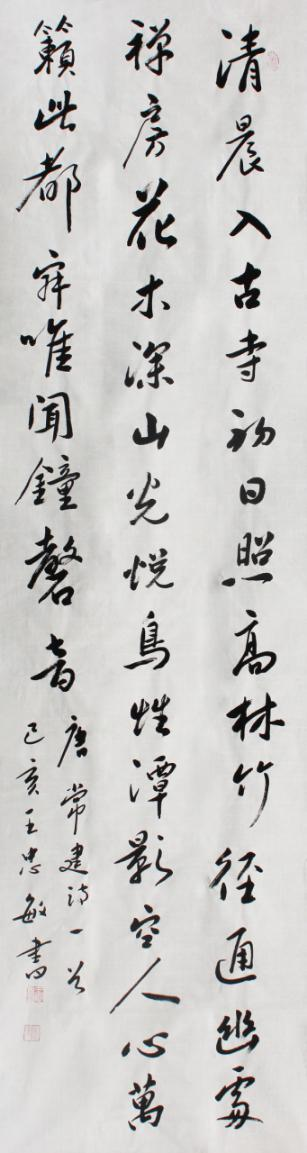 清晨入古寺初日照高林竹径通幽處
禅房花木深山光悦鳥性潭影空人心萬
籟此都寂唯聞鐘磬音
唐常建诗一首
己亥王忠敏書